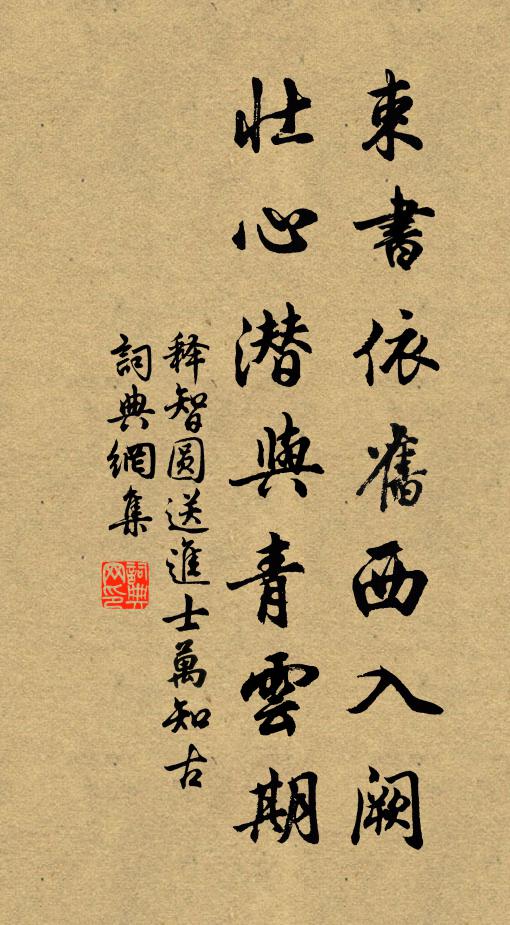 束書依舊西入阙
壮心潜與青雲期
释智圆送進士萬知古
詞典網集
詞典網印